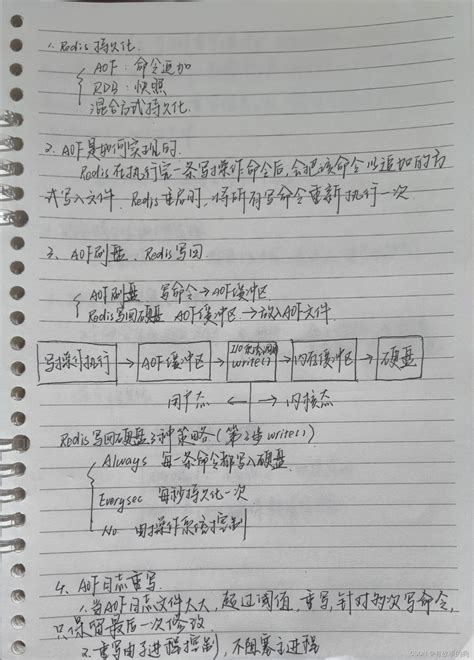 1. Redis持久化.
AOF: 命令追加
RDB: 快照
混合方式持久化.
2. AOF是如何实现的.
Redis在执行完一条写操作命令后,会把该命令以追加的方
式写入文件. Redis重启时,将所有写命令重新执行一次.
3. AOF刷盘、Redis写回
AOF刷盘 写命令→AOF缓冲区.
Redis写回硬盘 AOF缓冲区→放入AOF文件.
写操作执行 → AOF缓冲区 → I/O系统调用 write() → 内存缓冲区 → 硬盘
用户态 ← → 内核态
Redis写回硬盘3种策略(第2步write())
Always 每一条命令都写入硬盘
Everysec 每秒持久化一次
No 由操作系统控制
4. AOF日志重写
1. 当AOF日志文件太大,超过阈值,重写,针对多次写命令,
只保留最后一次修改.
2. 重写由子进程控制,不阻塞主进程